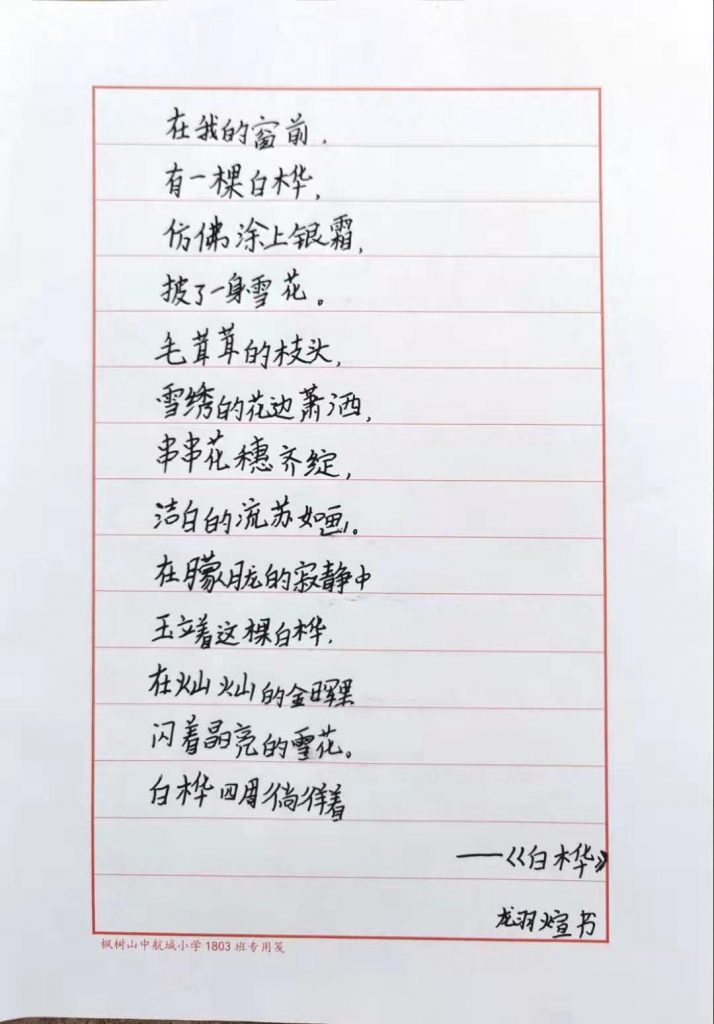 在我的窗前，
有一棵白桦，
仿佛涂上银霜，
披了一身雪花。
毛茸茸的枝头，
雪绣的花边萧洒，
串串花穗齐绽，
洁白的流苏如画。
在朦胧的寂静中
玉立着这棵白桦，
在灿灿的金晖里
闪着晶亮的雪花。
白桦四周徜徉着
——《白桦》
龙羽煊书
枫树山中航城小学1803班专用笺